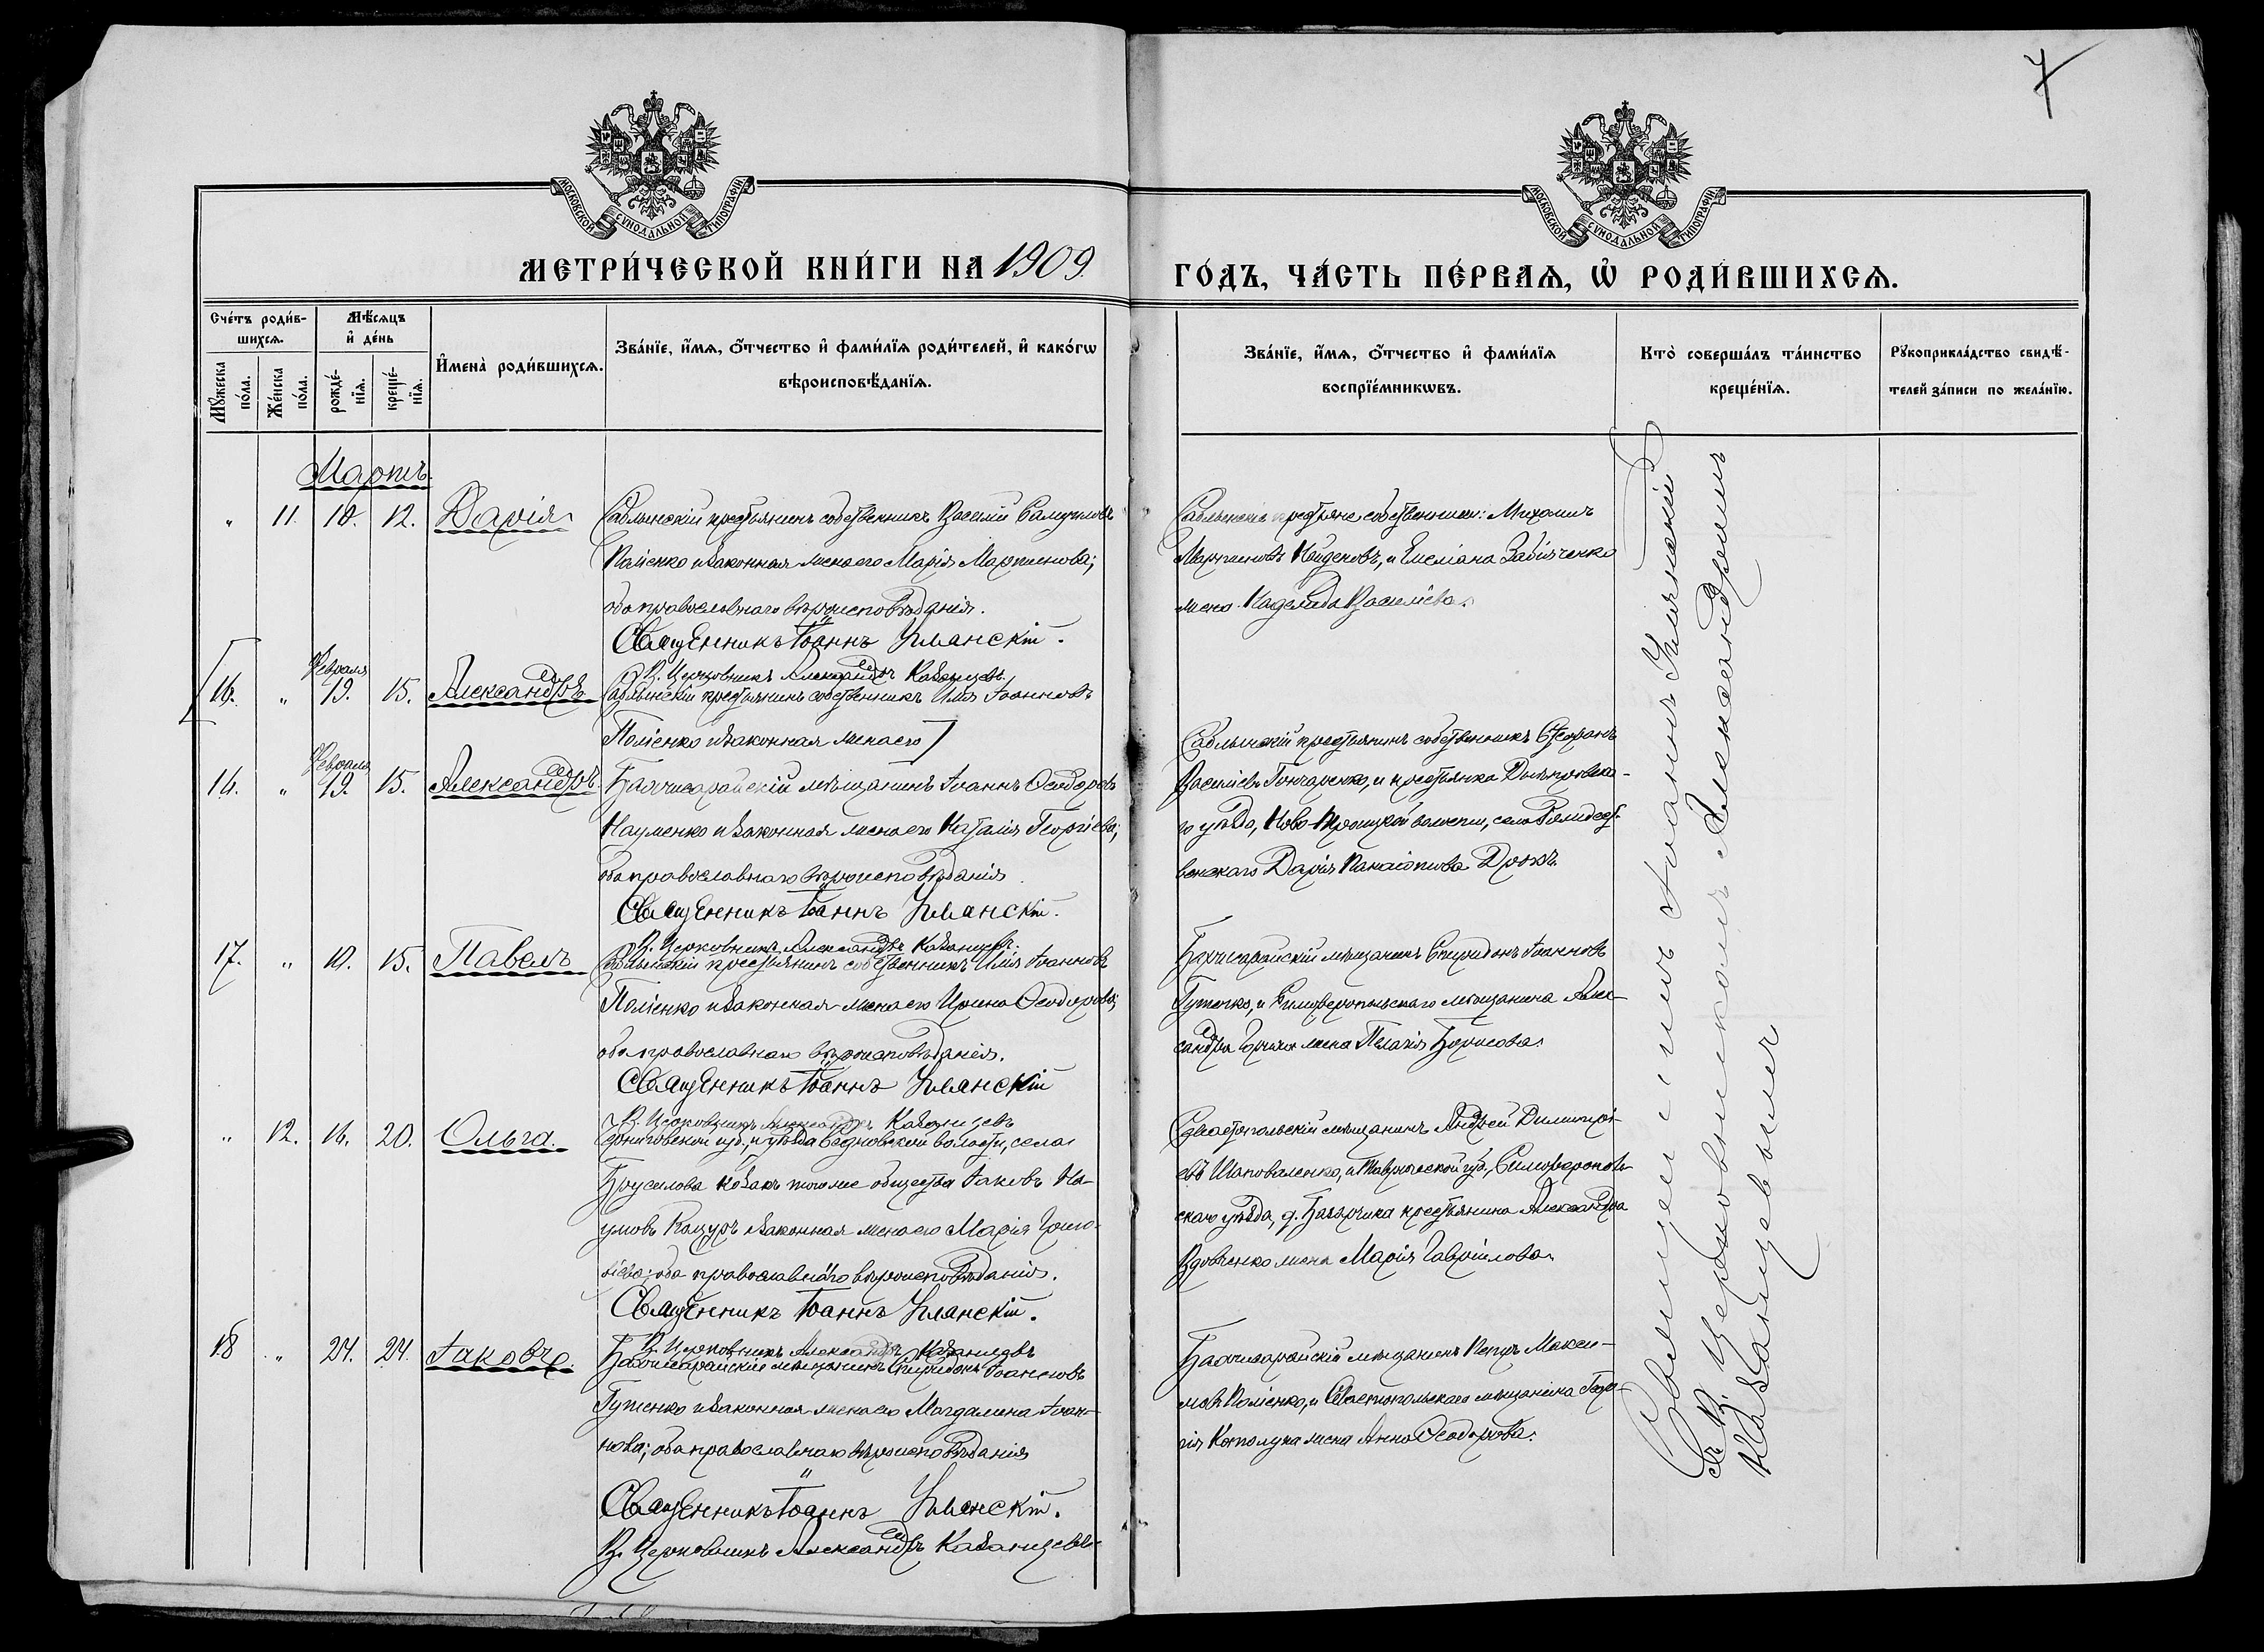 7
МОСКОВСКОЙ СѴНОДАЛЬНОЙ ТИПОГРАФІИ.
МОСКОВСКОЙ СѴНОДАЛЬНОЙ ТИПОГРАФІИ.
МЕТРИ́ЧЕСКОЙ КНИ́ГИ НА 1909
ГО́ДЪ, ЧА́СТЬ ПЕ́РВАѦ, Ѡ҆ РОДИ́ВШИХСѦ.
Сче́тъ роди́в-
шихсѧ.
Мꙋ́жеска
по́ла.
Же́нска
по́ла.
Мѣ́сѧцъ
и҆ де́нь
рожде́-
нїѧ.
креще́-
нїѧ.
И҆мена̀ роди́вшихсѧ.
Зва́нїе, и҆́мѧ, ѻ҆́тчество и҆ фами́лїѧ роди́телей, и҆ како́гѡ
вѣроисповѣ́данїѧ.
Зва́нїе, и҆́мѧ, ѻ҆́тчество и҆ фами́лїѧ
воспрїе́мникѡвъ.
Кто̀ соверша́лъ та́инство
креще́нїѧ.
Рꙋкоприкла́дство свидѣ́-
телей за́писи по жела́нїю.
Мартъ.
" 11. 10. 12. Дарія
Саблынскій крестьянинъ собственникъ Василій Самуиловъ
Поліенко и законная жена его Марія Мартинова;
оба православнаго вѣроисповѣданія.
Священникъ Іоаннъ Уманскій.
В. Церковникъ Александръ Казанцевъ
Саблынскіе крестьяне собственники: Михаилъ
Мартиновъ Найденовъ, и Емеліана Забіяченко
жена Надежда Васильева.
16. " Февраля 19. 15. Александръ
Саблынскій крестьянинъ собственникъ Илія Іоанновъ
Поліенко и законная жена его
16. " Февраля 19. 15. Александръ
Бахчисарайскій мѣщанинъ Іоаннъ Ѳеодоровъ
Науменко и законная жена его Наталія Георгіева;
оба православнаго вѣроисповѣданія
Священникъ Іоаннъ Уманскій.
В. Церковникъ Александръ Казанцевъ
Саблынскій крестьянинъ собственникъ Стефанъ
Васильевъ Гончаренко, и крестьянка Днѣпровска-
го уѣзда, Ново-Троицкой волости, села
Дарія
17. " 10. 15. Павелъ
Саблынскій крестьянинъ собственникъ Илія Іоанновъ
Поліенко и законная жена его Ирина Ѳеодорова;
оба православнаго вѣроисповѣданія.
Священникъ Іоаннъ Уманскій
В. Церковникъ Александръ Казанцевъ
Бахчисарайскій мѣщанинъ Спиридонъ Іоанновъ
Гутенко, и Симферопольскаго мѣщанина Алек-
сандра жена Пелагія Борисова.
" 12. 16. 20. Ольга.
Черниговской губ., и уѣзда волости, села
Брусилова козакъ того же общества Іаковъ На-
умовъ и законная жена его Марія Григо-
рьева; оба православнаго вѣроисповѣданія.
Священникъ Іоаннъ Уманскій.
В. Церковникъ Александръ Казанцевъ
Севастопольскій мѣщанинъ Андрей Димитрі-
евъ Шаповаленко, и Таврической губ., Симферополь-
скаго уѣзда, д. крестьянина Александра
Вдовченко жена Марія Гавріилова.
18 " 24. 24. Іаковъ.
Бахчисарайскій мѣщанинъ Спиридонъ Іоанновъ
Гутенко и законная жена его Магдалина Іоан-
нова; оба православнаго вѣроисповѣданія
Священникъ Іоаннъ Уманскій.
В. Церковникъ Александръ Казанцевъ
Бахчисарайскій мѣщанинъ Петръ Макси-
мовъ Поліенко, и Севастопольскаго мѣщанина Геор-
гія жена Анна Ѳеодорова.
Священникъ Іоаннъ Уманскій
съ В. Церковникомъ Александромъ
Казанцевымъ